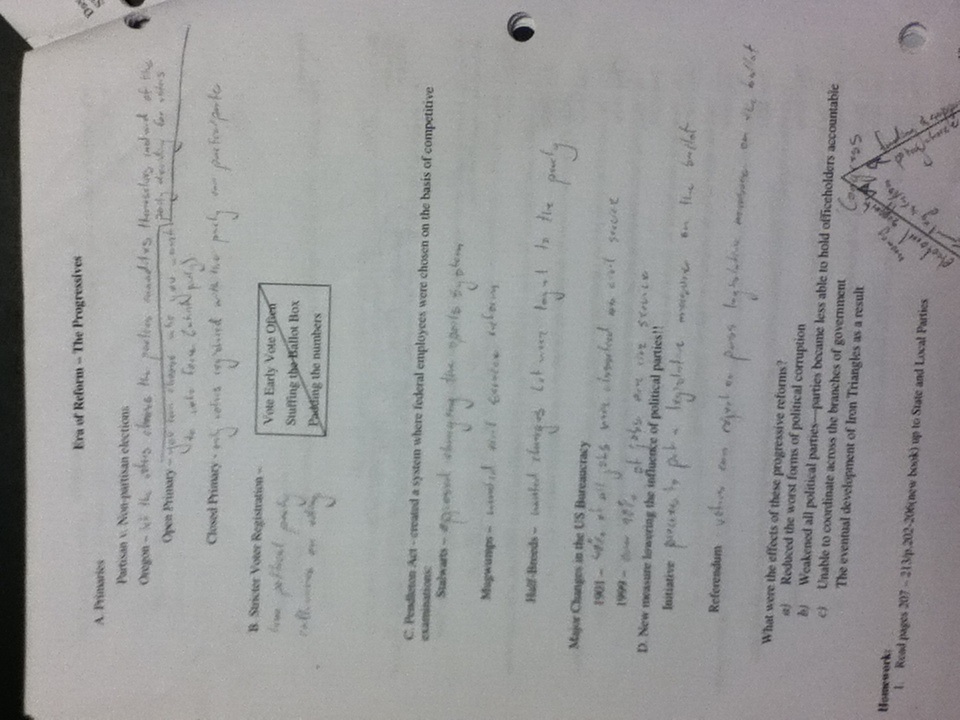 Era of Reform – The Progressives
A. Primaries
Partisan v. Non-partisan elections
Oregon – let the voters choose the parties themselves instead of the
party deciding for voters
Open Primary – you can choose who you want
to vote
Closed Primary - only voters registered with the party can
B. Stricter Voter Registration –
political party
on voting
Vote Early Vote Often
Stuffing the Ballot Box
Padding the numbers
C. Pendleton Act - created a system where federal employees were chosen on the basis of competitive
examinations:
Stalwarts – opposed changing the spoils system
Mugwumps – wanted civil service reform
Half-Breeds – wanted changes but were loyal to the party
Major Changes in the US Bureaucracy
1901 – of all jobs were classified as civil service
1999 – over 90% of jobs are service
D. New measure lowering the influence of political parties!!
Initiative process to put a legislative measures on the ballot
Referendum voters can reject or pass legislative measures on the ballot
What were the effects of these progressive reforms?
a) Reduced the worst forms of political corruption
b) Weakened all political parties—parties became less able to hold officeholders accountable
c) Unable to coordinate across the branches of government
The eventual development of Iron Triangles as a result
Congress
electoral support
Homework:
1. Read pages 207 – 213/p.202-206(new book) up to State and Local Parties